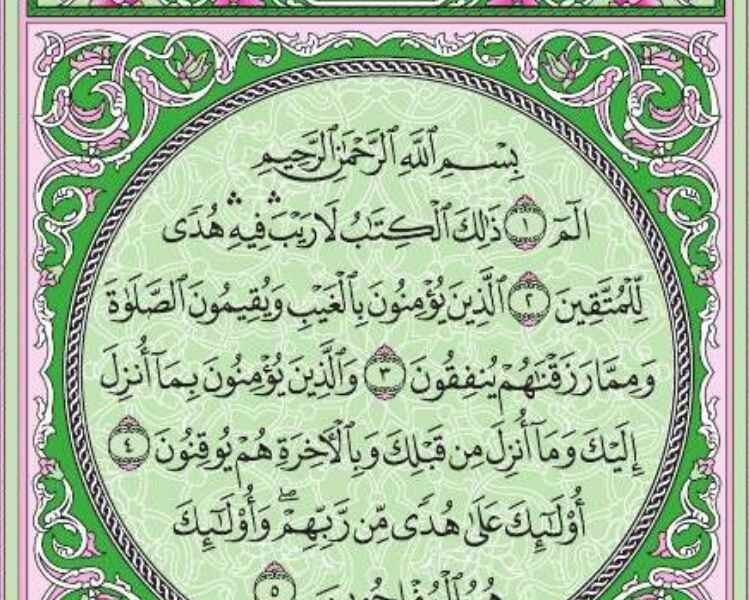 بِسْمِ ٱللَّهِ ٱلرَّحْمَٰنِ ٱلرَّحِيمِ
الٓمٓ ١ ذَٰلِكَ ٱلْكِتَٰبُ لَا رَيْبَۛ فِيهِۛ هُدًى
لِّلْمُتَّقِينَ ٢ ٱلَّذِينَ يُؤْمِنُونَ بِٱلْغَيْبِ وَيُقِيمُونَ ٱلصَّلَوٰةَ
وَمِمَّا رَزَقْنَٰهُمْ يُنفِقُونَ ٣ وَٱلَّذِينَ يُؤْمِنُونَ بِمَآ أُنزِلَ
إِلَيْكَ وَمَآ أُنزِلَ مِن قَبْلِكَ وَبِٱلْءَاخِرَةِ هُمْ يُوقِنُونَ ٤
أُو۟لَٰٓئِكَ عَلَىٰ هُدًى مِّن رَّبِّهِمْۖ وَأُو۟لَٰٓئِكَ
هُمُ ٱلْمُفْلِحُونَ ٥